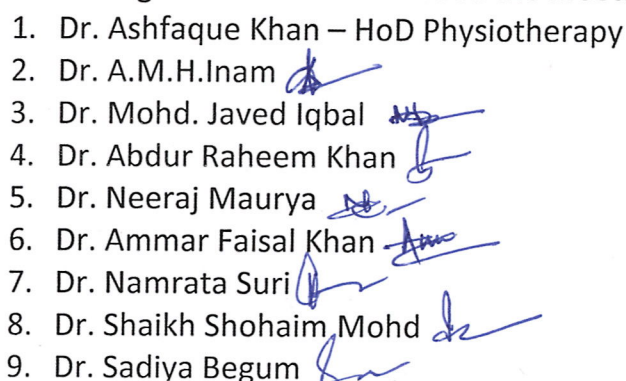 1. Dr. Ashfaque Khan – HoD Physiotherapy
2. Dr. A.M.H.Inam
3. Dr. Mohd. Javed Iqbal
4. Dr. Abdur Raheem Khan
5. Dr. Neeraj Maurya
6. Dr. Ammar Faisal Khan
7. Dr. Namrata Suri
8. Dr. Shaikh Shohaim Mohd
9. Dr. Sadiya Begum